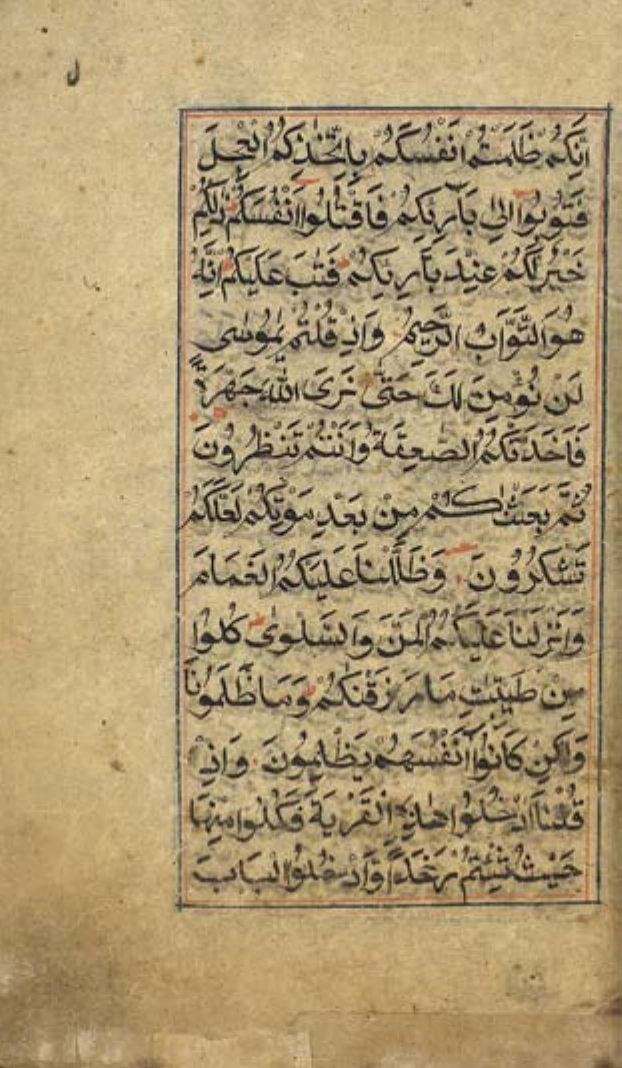 ل
اِنَّكُمْ ظَلَمْتُمْ اَنْفُسَكُمْ بِاتِّخَاذِكُمُ الْعِجْلَ
فَتُوبُوْا اِلٰى بَارِئِكُمْ فَاقْتُلُوْا اَنْفُسَكُمْ ذٰلِكُمْ
خَيْرٌ لَكُمْ عِنْدَ بَارِئِكُمْ فَتَابَ عَلَيْكُمْ اِنَّهُ
هُوَ التَّوَّابُ الرَّحِيْمُ وَاِذْ قُلْتُمْ يٰمُوسٰى
لَنْ نُؤْمِنَ لَكَ حَتّٰى نَرَى اللّٰهَ جَهْرَةً
فَاَخَذَتْكُمُ الصّٰعِقَةُ وَاَنْتُمْ تَنْظُرُوْنَ
ثُمَّ بَعَثْنٰكُمْ مِنْ بَعْدِ مَوْتِكُمْ لَعَلَّكُمْ
تَشْكُرُوْنَ وَظَلَّلْنَا عَلَيْكُمُ الْغَمَامَ
وَاَنْزَلْنَا عَلَيْكُمُ الْمَنَّ وَالسَّلْوٰى كُلُوْا
مِنْ طَيِّبٰتِ مَا رَزَقْنٰكُمْ وَمَا ظَلَمُوْنَا
وَلٰكِنْ كَانُوْا اَنْفُسَهُمْ يَظْلِمُوْنَ وَاِذْ
قُلْنَا ادْخُلُوْا هٰذِهِ الْقَرْيَةَ فَكُلُوْا مِنْهَا
حَيْثُ شِئْتُمْ رَغَدًا وَادْخُلُوا الْبَابَ